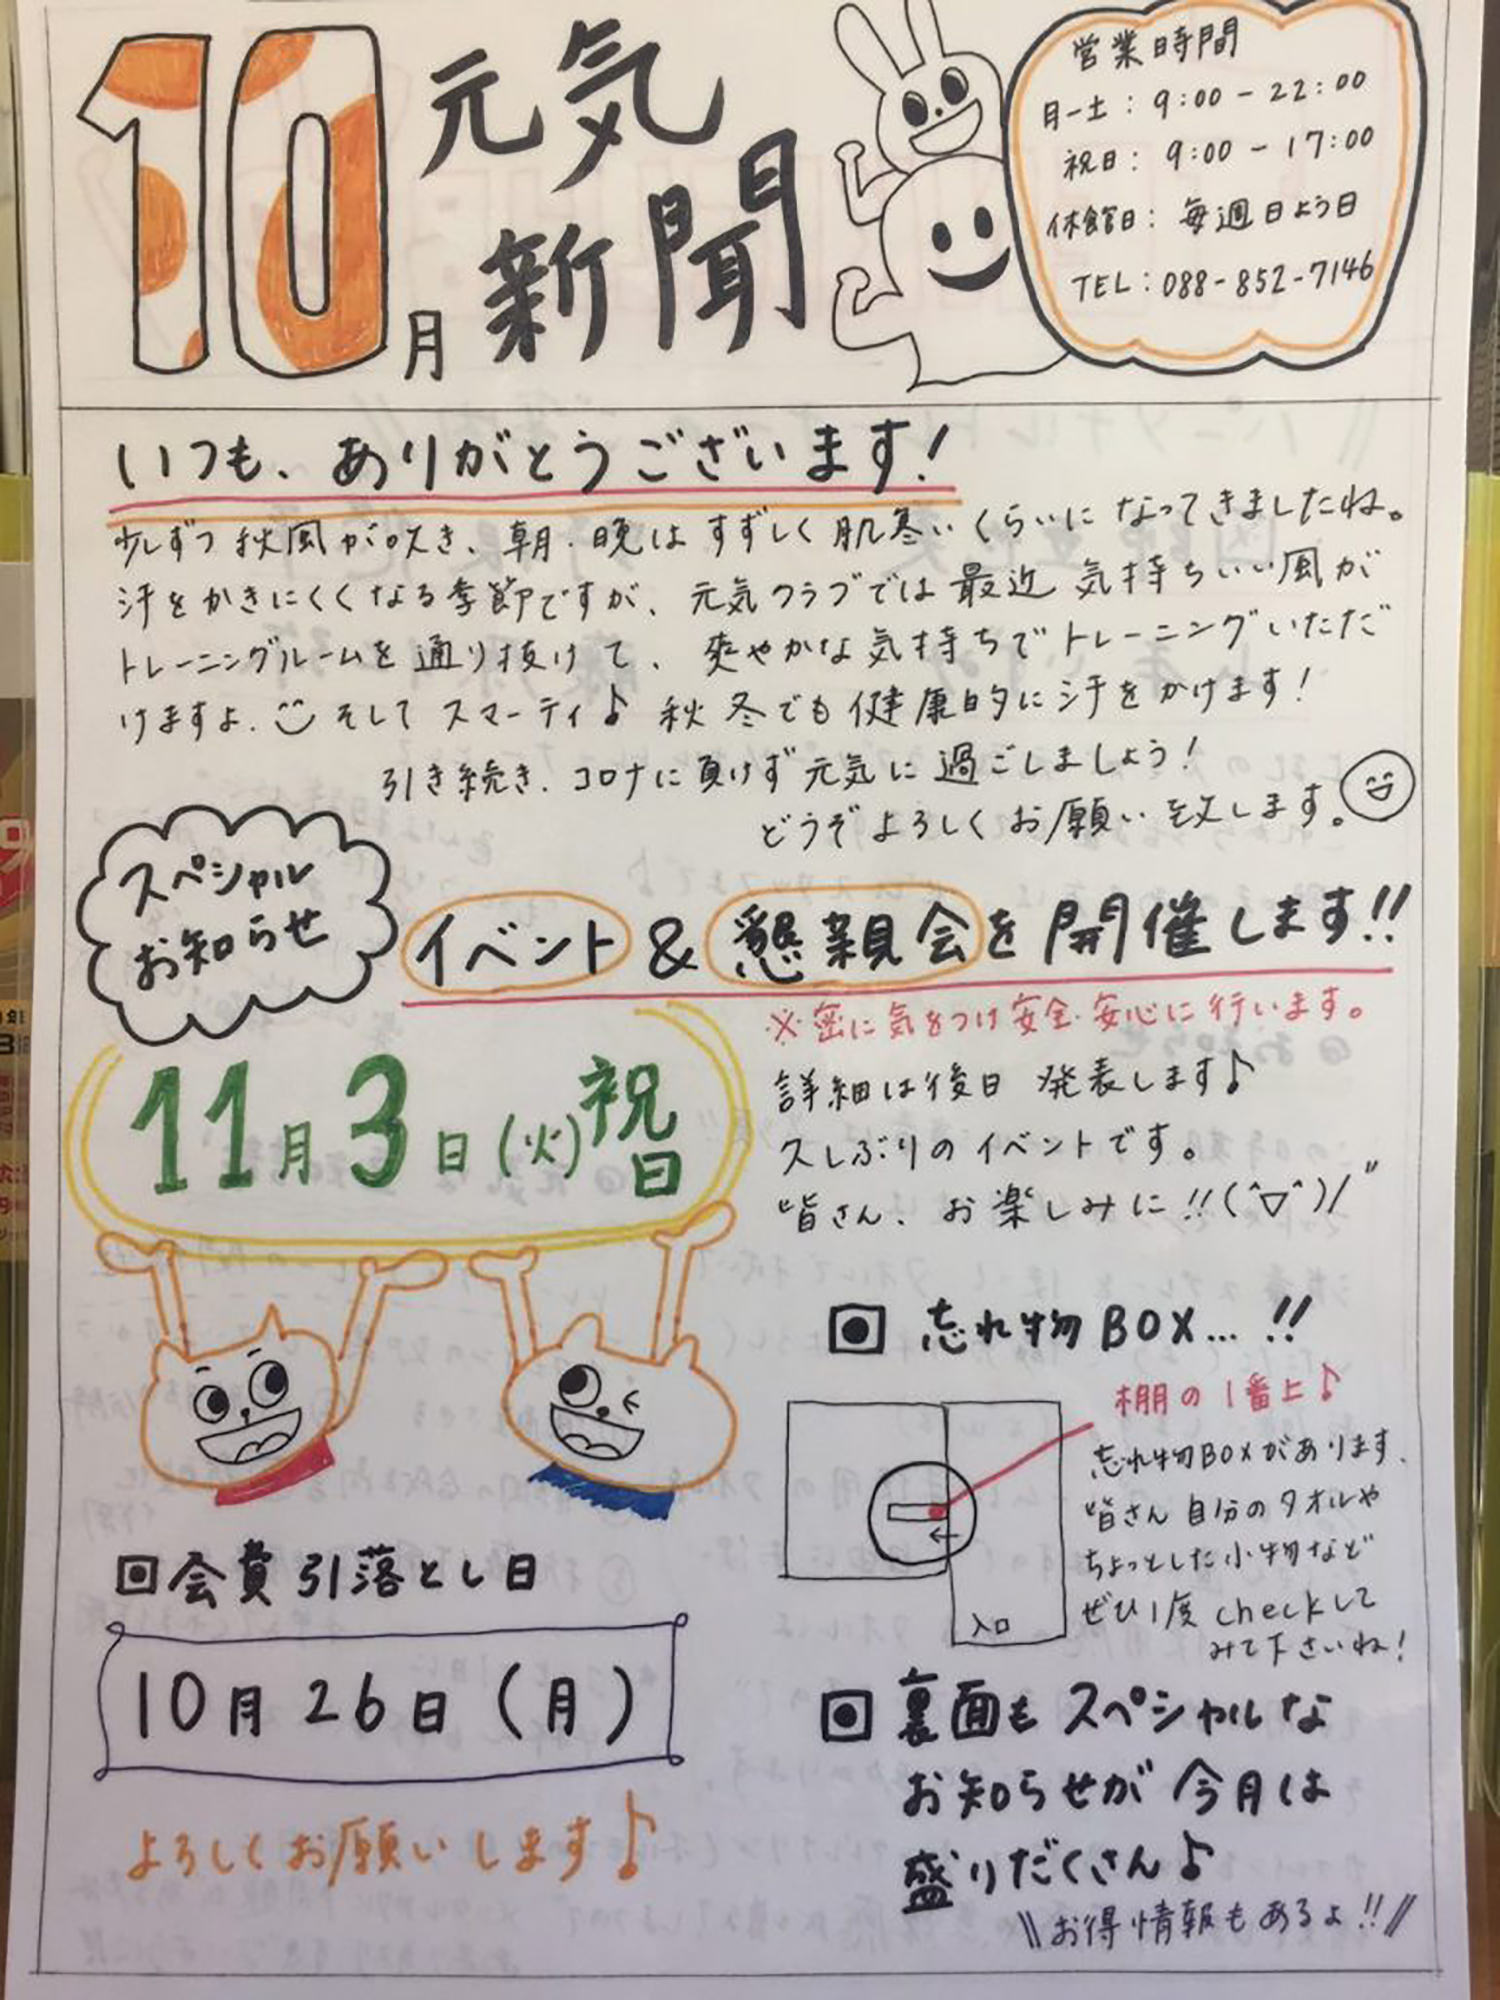 10月 元気新聞
営業時間
月ー土：9:00－22:00
祝日：9:00－17:00
休館日：毎週日よう日
TEL：088-852-7146
いつも、ありがとうございます！
少しずつ秋風が吹き、朝・晩はすずしく肌寒いくらいになってきましたね。
汗をかきにくくなる季節ですが、元気クラブでは最近気持ちいい風が
トレーニングルームを通り抜けて、爽やかな気持ちでトレーニングいただ
けますよ。そしてスマーティ♪秋冬でも健康的に汗をかけます！
引き続き、コロナに負けず元気に過ごしましょう！
どうぞよろしくお願い致します。
スペシャル
お知らせ
イベント＆懇親会を開催します!!
※密に気をつけ安全・安心に行います。
11月3日(火)祝日
詳細は後日発表します♪
久しぶりのイベントです。
皆さん、お楽しみに!!(^▽^)/"
忘れ物BOX…!!
棚の1番上♪
忘れ物BOXがあります。
皆さん自分のタオルや
ちょっとした小物など
ぜひ1度checkして
みて下さいね！
入口
会費引落とし日
10月26日(月)
よろしくお願いします♪
裏面もスペシャルな
お知らせが今月は
盛りだくさん♪
\\お得情報もあるよ!!//